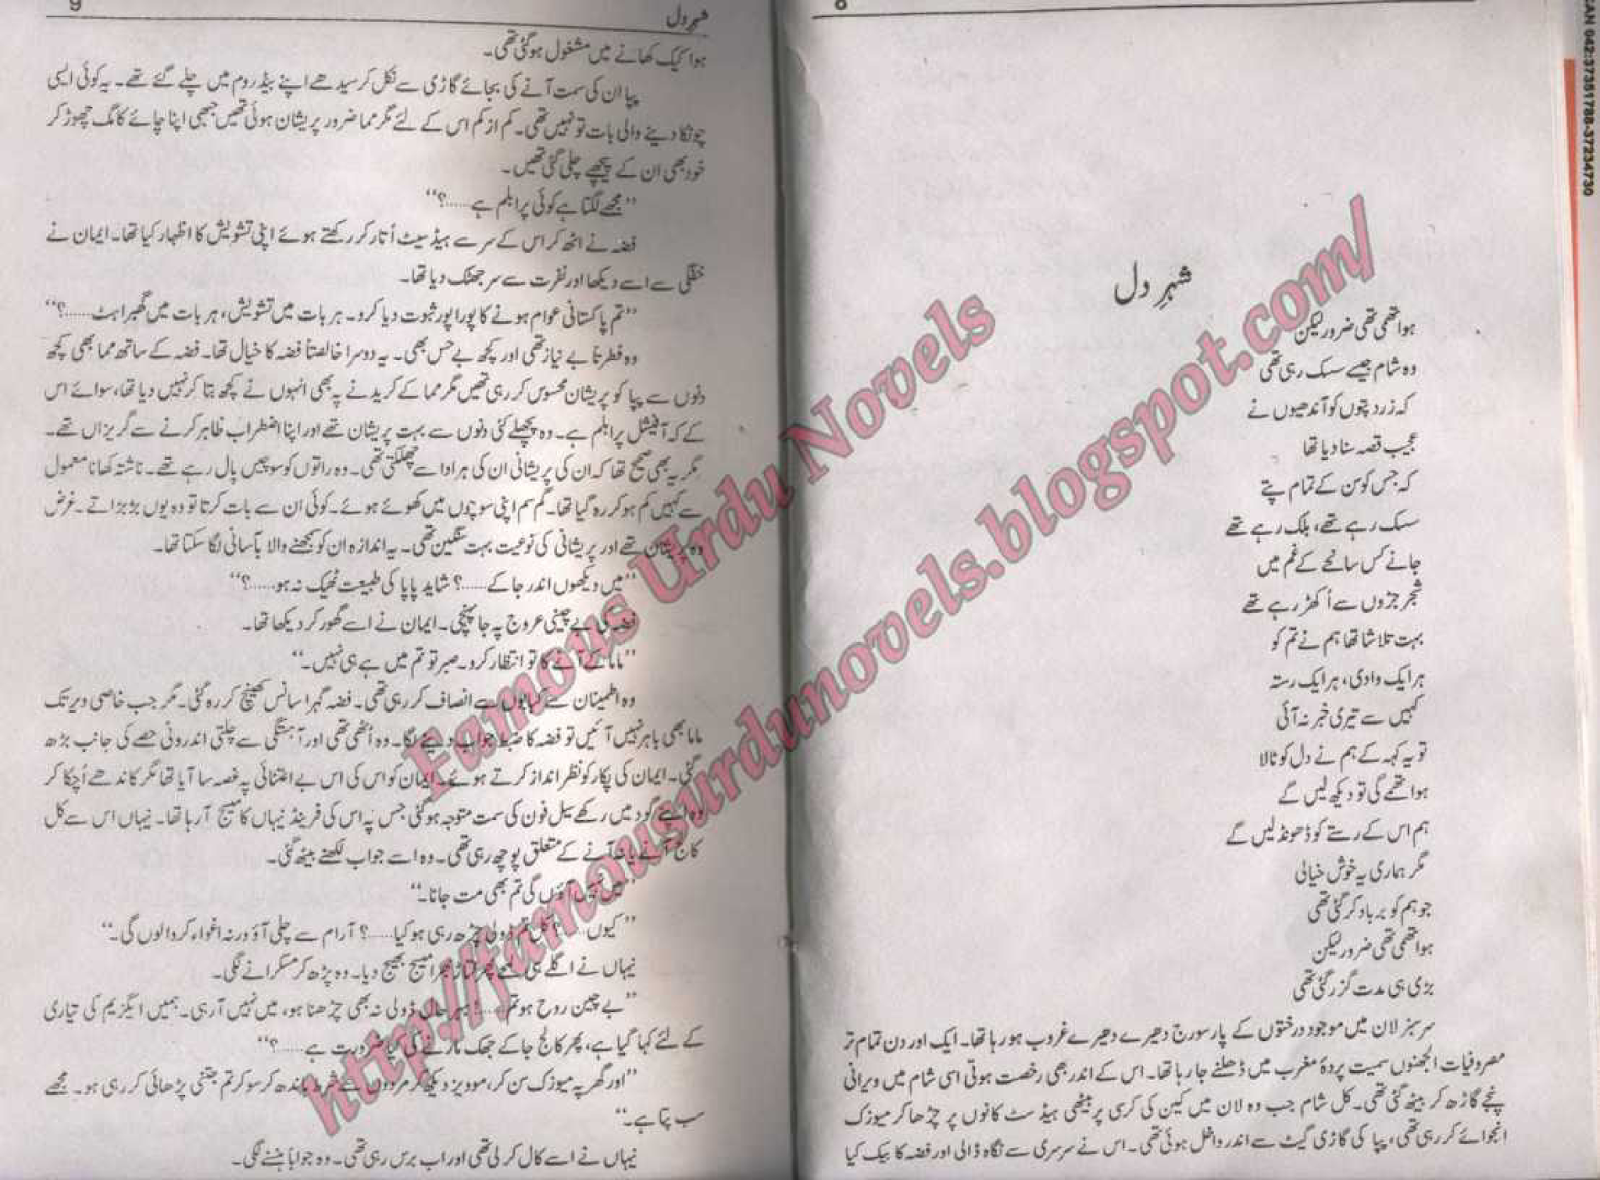 8
شہرِ دل
ہوا تھمی تھی ضرور لیکن
وہ شام جیسے سسک رہی تھی
کہ زرد پتوں کو آندھیوں نے
عجیب قصہ سنا دیا تھا
کہ جس کو سن کے تمام پتے
سسک رہے تھے، بلک رہے تھے
جانے کس سانحے کے غم میں
شجر جڑوں سے اُکھڑ رہے تھے
بہت تلاشا تھا ہم نے تم کو
ہر ایک وادی، ہر ایک رستہ
کہیں سے تیری خبر نہ آئی
تو یہ کہہ کے ہم نے دل کو ٹالا
ہوا تھمے گی تو دیکھ لیں گے
ہم اس کے رستے کو ڈھونڈ لیں گے
مگر ہماری یہ خوش خیالی
جو ہم کو برباد کر گئی تھی
ہوا تھمی تھی ضرور لیکن
بڑی ہی مدت گزر گئی تھی
سرسبز لان میں موجود درختوں کے پار سورج دھیرے دھیرے غروب ہو رہا تھا۔ ایک اور دن تمام تر
مصروفیات الجھنوں سمیت پردۂ مغرب میں ڈھلنے جا رہا تھا۔ اس کے اندر بھی رخصت ہوتی اسی شام میں ویرانی
پنجے گاڑھ کر بیٹھ گئی تھی۔ کل شام جب وہ لان میں کین کی کرسی پر بیٹھی ہیڈ سٹ کانوں پر چڑھا کر میوزک
انجوائے کر رہی تھی، پپا کی گاڑی گیٹ سے اندر داخل ہوئی تھی۔ اس نے سرسری سے نگاہ ڈالی اور فضہ کا بیک کیا
شہرِ دل
9
ہوا کیک کھانے میں مشغول ہو گئی تھی۔
پپا ان کی سمت آنے کی بجائے گاڑی سے نکل کر سیدھے اپنے بیڈ روم میں چلے گئے تھے۔ یہ کوئی ایسی
چونکا دینے والی بات تو نہیں تھی۔ کم از کم اس کے لئے مگر مما ضرور پریشان ہوئی تھیں جبھی اپنا چائے کا مگ چھوڑ کر
خود بھی ان کے پیچھے چلی گئی تھیں۔
”مجھے لگتا ہے کوئی پرابلم ہے.....؟“
فضہ نے اٹھ کر اس کے سر سے ہیڈ سیٹ اُتار کر رکھتے ہوئے اپنی تشویش کا اظہار کیا تھا۔ ایمان نے
خفگی سے اسے دیکھا اور نفرت سے سر جھٹک دیا تھا۔
”تم پاکستانی عوام ہونے کا پورا پورا ثبوت دیا کرو۔ ہر بات میں تشویش، ہر بات میں گھبراہٹ.....؟“
وہ فطرتاً بے نیاز تھی اور کچھ بے حس بھی۔ یہ دوسرا خالصتاً فضہ کا خیال تھا۔ فضہ کے ساتھ مما بھی کچھ
دنوں سے پپا کو پریشان محسوس کر رہی تھیں مگر مما کے کریدنے پہ بھی انہوں نے کچھ بتا کر نہیں دیا تھا، سوائے اس
کے کہ آفیشل پرابلم ہے۔ وہ پچھلے کئی دنوں سے بہت پریشان تھے اور اپنا اضطراب ظاہر کرنے سے گریزاں تھے۔
مگر یہ بھی صحیح تھا کہ ان کی پریشانی ان کی ہر ادا سے چھلکتی تھی۔ وہ راتوں کو سوچیں پال رہے تھے۔ ناشتہ کھانا معمول
سے کہیں کم ہو کر رہ گیا تھا۔ گم سم اپنی سوچوں میں کھوئے ہوئے۔ کوئی ان سے بات کرتا تو وہ یوں ہڑبڑاتے۔ غرض
وہ پریشان تھے اور پریشانی کی نوعیت بہت سنگین تھی۔ یہ اندازہ ان کو سمجھنے والا بآسانی لگا سکتا تھا۔
”میں دیکھوں اندر جا کے.....؟ شاید پاپا کی طبیعت ٹھیک نہ ہو.....؟“
فضہ کی بے چینی عروج پہ جا پہنچی۔ ایمان نے اسے گھور کر دیکھا تھا۔
”ماما کے آنے کا تو انتظار کرو۔ صبر تو تم میں ہے ہی نہیں۔“
وہ اطمینان سے کبابوں سے انصاف کر رہی تھی۔ فضہ گہرا سانس کھینچ کر رہ گئی۔ مگر جب خاصی دیر تک
ماما بھی باہر نہیں آئیں تو فضہ کا ضبط جواب دینے لگا۔ وہ اُٹھی تھی اور آہستگی سے چلتی اندرونی حصے کی جانب بڑھ
گئی۔ ایمان کی پکار کو نظر انداز کرتے ہوئے۔ ایمان کو اس کی اس بے اعتنائی پہ غصہ سا آیا تھا مگر کاندھے اُچکا کر
وہ اپنے گود میں رکھے سیل فون کی سمت متوجہ ہو گئی جس پہ اس کی فرینڈ نیہاں کا میسج آ رہا تھا۔ نیہاں اس سے کل
کالج آنے یا نہ آنے کے متعلق پوچھ رہی تھی۔ وہ اسے جواب لکھنے بیٹھ گئی۔
”میں نہیں آؤں گی تم بھی مت جانا۔“
”کیوں..... کل تم ڈولی چڑھ رہی ہو کیا.....؟ آرام سے چلی آؤ ورنہ اغواء کروا لوں گی۔“
نیہاں نے اگلے ہی لمحے پھر میسج بھیج دیا۔ وہ پڑھ کر مسکرانے لگی۔
”بے چین روح ہو تم..... بہرحال ڈولی نہ بھی چڑھنا ہو، میں نہیں آ رہی۔ ہمیں ایگزیم کی تیاری
کے لئے کہا گیا ہے، پھر کالج جا کے جھک مارنے کی کیا ضرورت ہے.....؟“
”اور گھر پہ میوزک سن کر، موویز دیکھ کر مُردوں سے شرط باندھ کر سو کر تم جتنی پڑھائی کر رہی ہو۔ مجھے
سب پتا ہے۔“
نیہاں نے اسے کال کر لی تھی اور اب برس رہی تھی۔ وہ جواباً ہنسنے لگی۔
Famous Urdu Novels
http://famousurdunovels.blogspot.com/
042:37351788-37234730